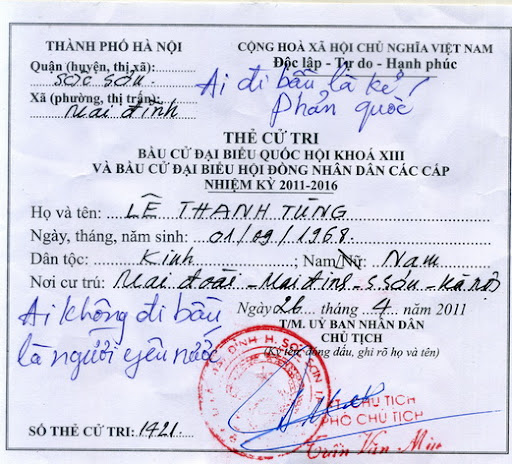 THÀNH PHỐ HÀ NỘI
CỘNG HOÀ XÃ HỘI CHỦ NGHĨA VIỆT NAM
Quận (huyện, thị xã):
Độc lập - Tự do - Hạnh phúc
Sóc Sơn
Ai đi bầu là kẻ
phản quốc
Xã (phường, thị trấn):
Mai Đình
THẺ CỬ TRI
BẦU CỬ ĐẠI BIỂU QUỐC HỘI KHOÁ XIII
VÀ BẦU CỬ ĐẠI BIỂU HỘI ĐỒNG NHÂN DÂN CÁC CẤP
NHIỆM KỲ 2011-2016
Họ và tên: LÊ THANH TÙNG
Ngày, tháng, năm sinh: 01/09/1968.
Dân tộc: Kinh ; Nam/Nữ: Nam
Nơi cư trú: Mai Đoài - Mai Đình - S.Sơn - Hà Nội
Ai không đi bầu
là người yêu nước
Ngày 26 tháng 4 năm 2011
T/M. UỶ BAN NHÂN DÂN
CHỦ TỊCH
(Ký tên, đóng dấu, ghi rõ họ và tên)
ĐÌNH H. SÓC SƠN
KT CHỦ TỊCH
PHÓ CHỦ TỊCH
Trần Văn
SỐ THẺ CỬ TRI: 1421